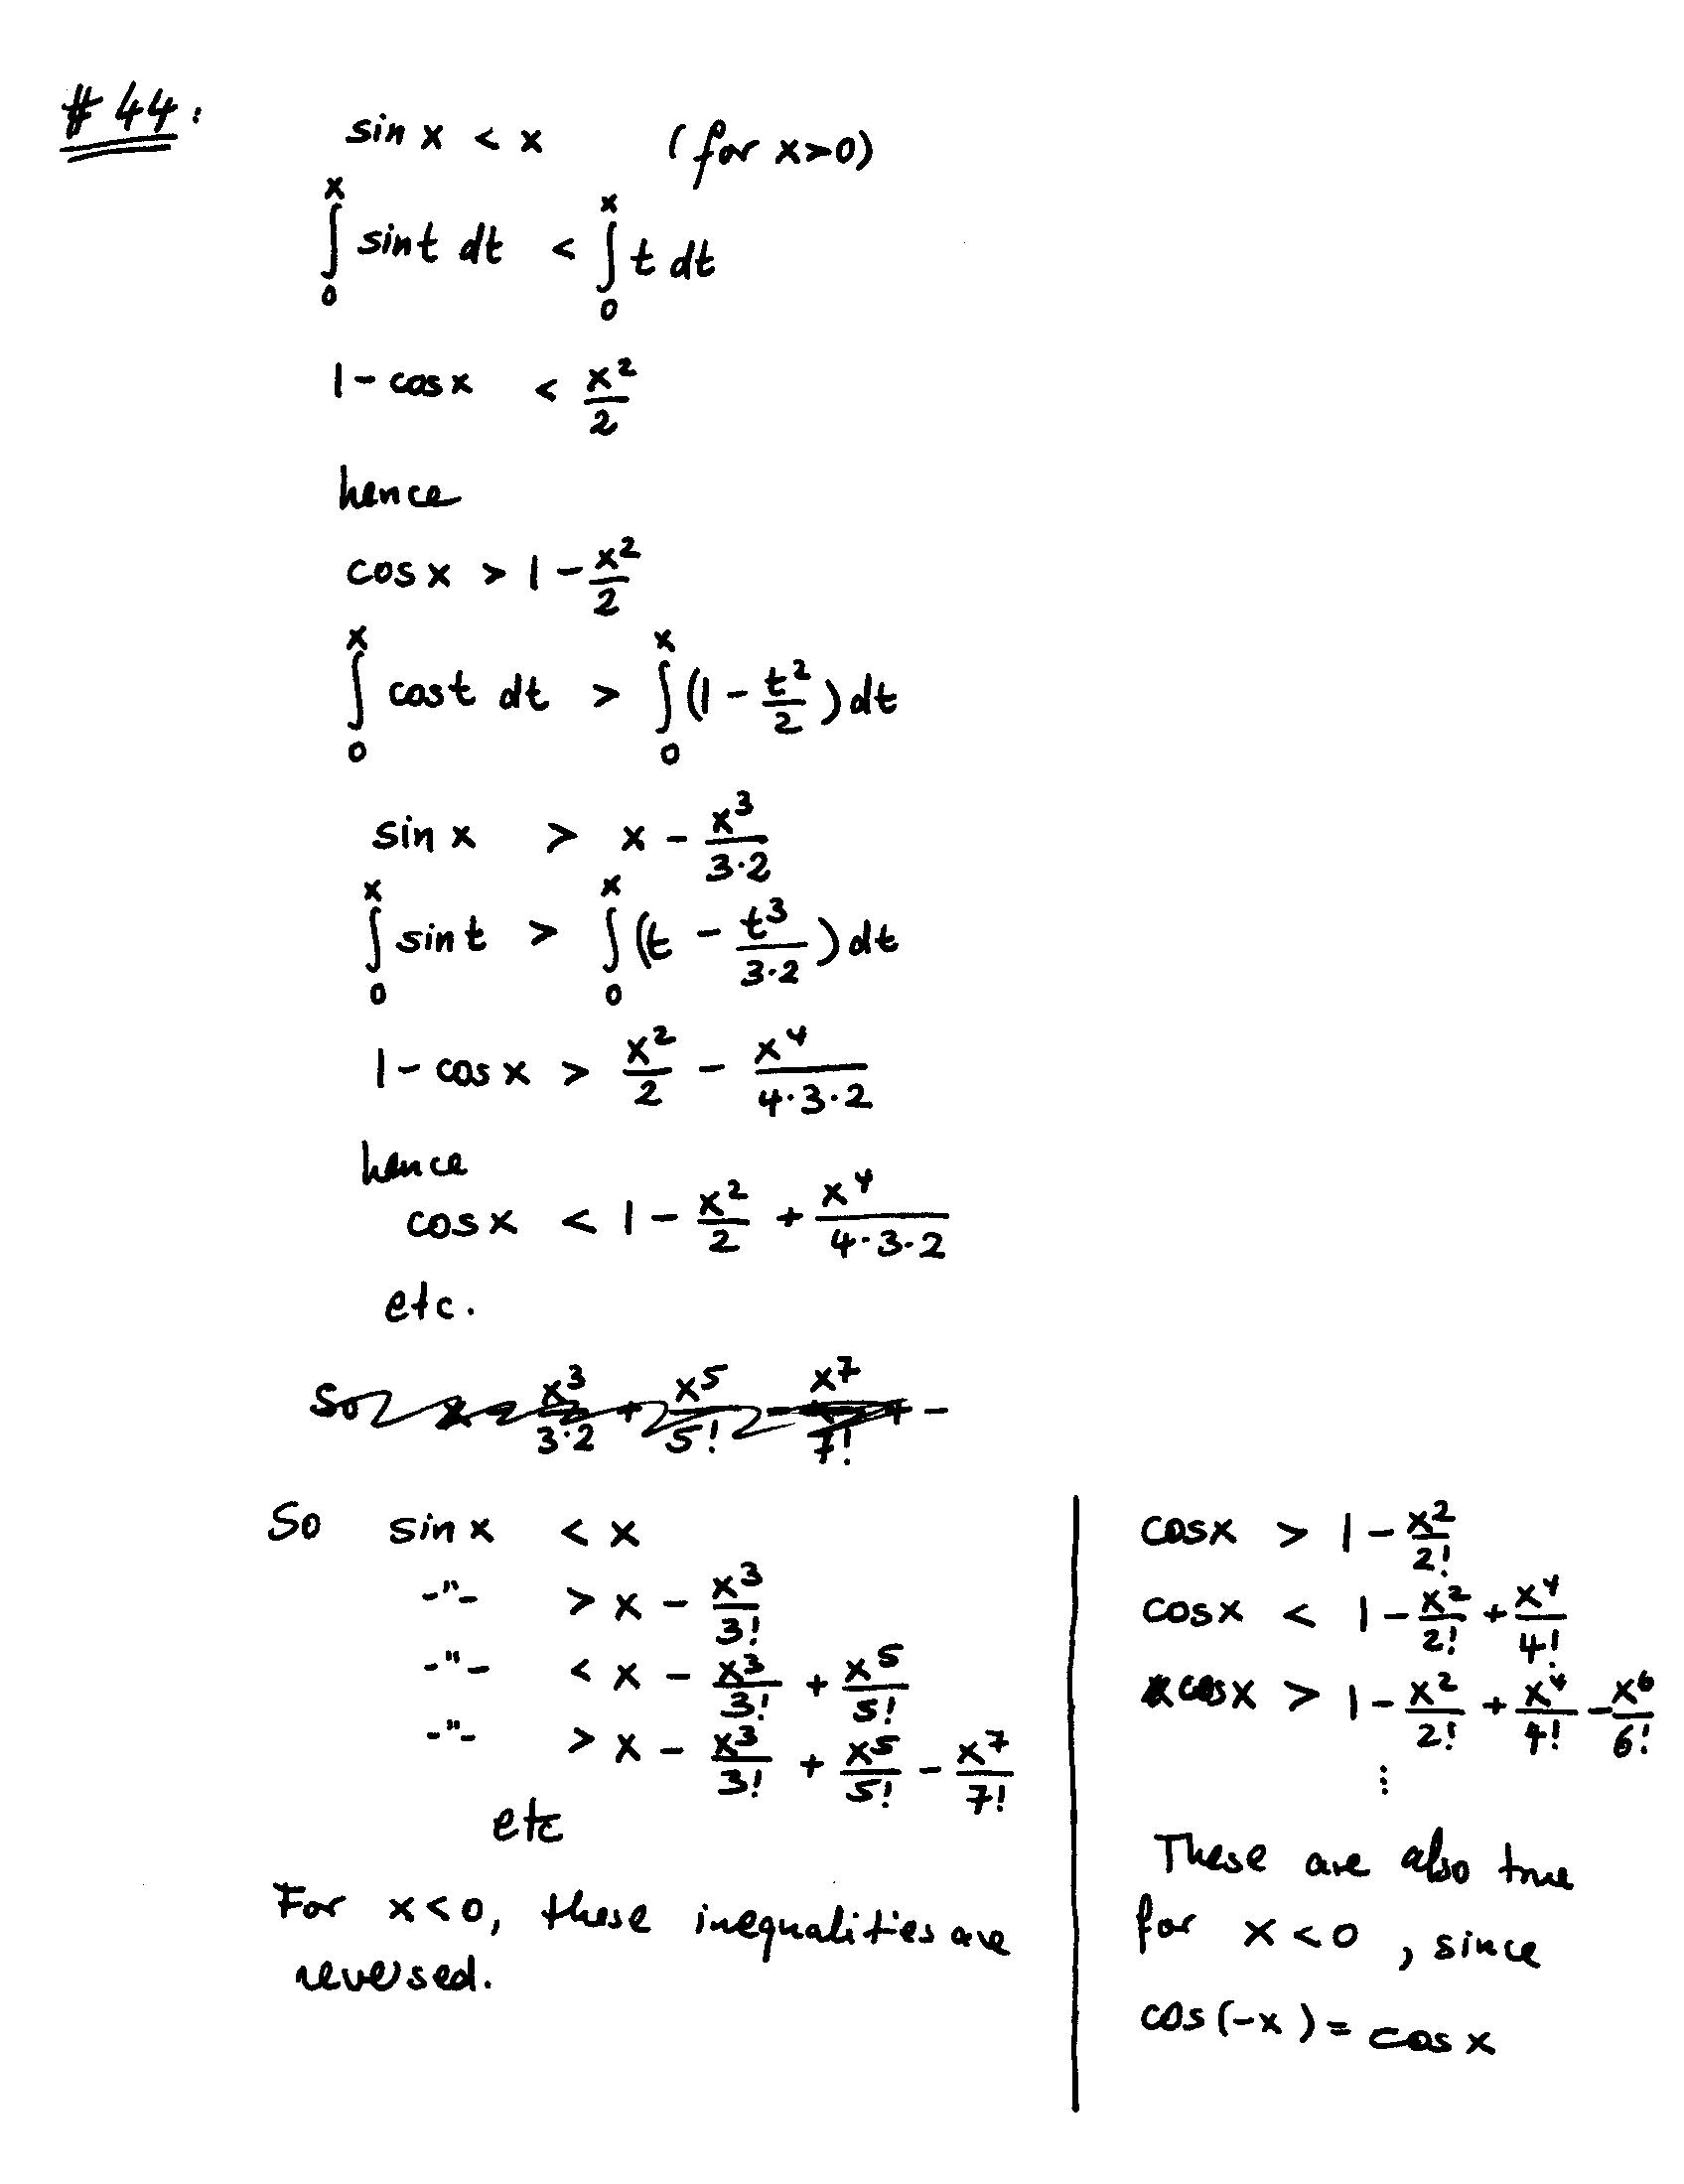 # 44:
sin x < x (for x>0)
∫₀ˣ sin t dt < ∫₀ˣ t dt
1 - cos x < x²/2
hence
cos x > 1 - x²/2
∫₀ˣ cos t dt > ∫₀ˣ (1 - t²/2) dt
sin x > x - x³/(3·2)
∫₀ˣ sin t > ∫₀ˣ (t - t³/(3·2)) dt
1 - cos x > x²/2 - x⁴/(4·3·2)
hence
cos x < 1 - x²/2 + x⁴/(4·3·2)
etc.
So x - x³/(3·2) + x⁵/5! - x⁷/7! + -
So sin x < x
-"- > x - x³/3!
-"- < x - x³/3! + x⁵/5!
-"- > x - x³/3! + x⁵/5! - x⁷/7!
etc
For x<0, these inequalities are
reversed.
cos x > 1 - x²/2!
cos x < 1 - x²/2! + x⁴/4!
cos x > 1 - x²/2! + x⁴/4! - x⁶/6!
⋮
These are also true
for x<0, since
cos(-x) = cos x